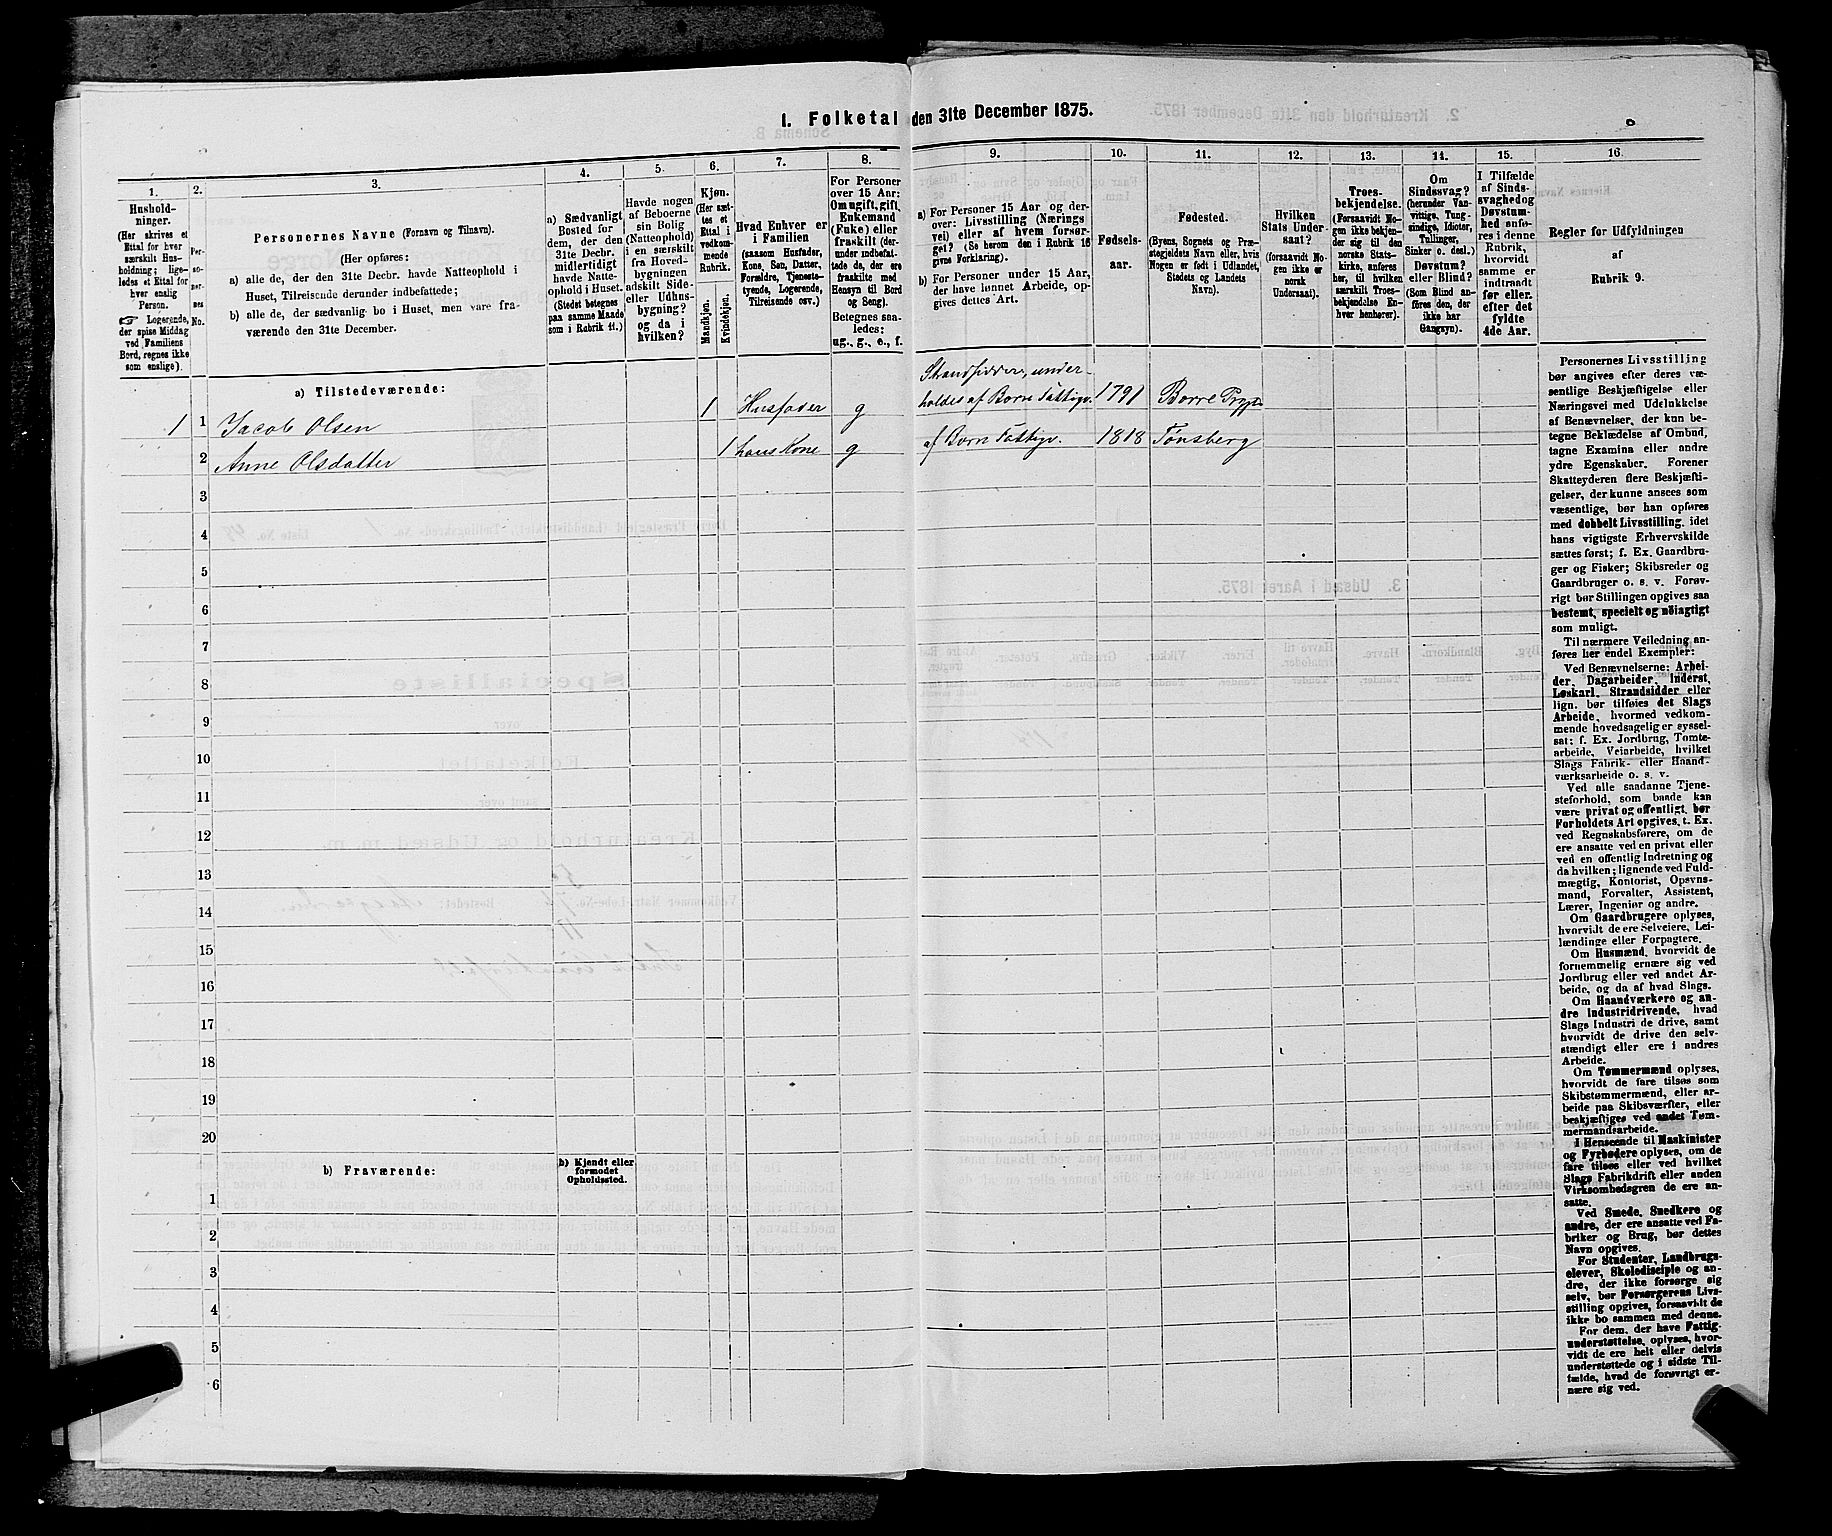 1. Folketal den 31te December 1875.
1.
Husholdninger.
(Her skrives et Ettal for hver særskilt Husholdning; ligeledes et Ettal for hver enslig Person.
☞ Logerende, der spise Middag ved Familiens Bord, regnes ikke som enslige).
2.
Personernes No.
3.
Personernes Navne (Fornavn og Tilnavn).
(Her opføres:
a) alle de, der den 31te Decbr. havde Natteophold i
Huset, Tilreisende derunder indbefattede;
b) alle de, der sædvanlig bo i Huset, men vare fra-
værende den 31te December.
4.
a) Sædvanligt
Bosted for
dem, der den
31te Decbr.
midlertidigt
havde Natte-
ophold i Huset.
(Stedet betegnes
paa samme Maade
som i Rubrik 11.)
5.
Havde nogen
af Beboerne
sin Bolig
(Natteophold)
i en særskilt
fra Hoved-
bygningen
adskilt Side-
eller Udhus-
bygning?
og da i
hvilken?
6.
Kjøn.
(Her sæt-
tes et
Ettal i
vedkom-
mende
Rubrik.
Mandkjøn.
Kvindekjøn.
7.
Hvad Enhver er
i Familien
(saasom Husfader,
Kone, Søn, Datter,
Forældre, Tjeneste-
tyende, Logerende,
Tilreisende osv.)
8.
For Personer
over 15 Aar:
Om ugift, gift,
Enkemand
(Enke) eller
fraskilt (der-
under indbefat-
tede de, der ere
fraskilte med
Hensyn til Bord
og Seng).
Betegnes saa-
ledes:
ug., g., e., f.
9.
a) For Personer 15 Aar og der-
over: Livsstilling (Nærings
vei) eller af hvem forsør-
get? (Se herom den i Rubrik 16
givne Forklaring).
b) For Personer under 15 Aar,
der have lønnet Arbeide, op-
gives dettes Art.
10.
Fødsels-
aar.
11.
Fødested.
(Byens, Sognets og Præ-
stegjeldets Navn eller, hvis
Nogen er født i Udlandet,
Stedets og Landets
Navn).
12.
Hvilken
Stats Under-
saat?
(forsaavidt No-
gen ikke er
norsk
Undersaat).
13.
Troes-
bekjendelse.
(Forsaavidt No-
gen ikke bekjen-
der sig til den
norske Stats-
kirke, anføres
her, til hvilken
særskilt Troes-
bekjendelse En-
hver henhører).
14.
Om
Sindssvag?
(herunder Van-
vittige, Tung-
sindige, Idioter,
Tullinger,
Sinker o. desl.)
Døvstum?
eller Blind?
(Som Blind an-
føres den, der
ikke har
Gangsyn).
15.
I Tilfælde
af Sinds-
svaghed og
Døvstum-
hed anfø-
res i denne
Rubrik,
hvorvidt
samme er
indtraadt
før eller
efter det
fyldte
4de Aar.
16.
Regler for Udfyldningen
af
Rubrik 9.
a) Tilstedeværende:
1 1 Jacob Olsen 1 Husfader g Strandsidder, under-
holdes af Borre Fattigv. 1791 Borre
2 Anne Olsdatter 1 hans Kone g af Borre Fattigv. 1818 Tønsberg
3
4
5
6
7
8
9
10
11
12
13
14
15
16
17
18
19
20
b) Fraværende:
b) Kjendt eller
formodet
Opholdssted.
1
2
3
4
5
6
Personernes Livsstilling
bør angives efter deres væ-
sentlige Beskjæftigelse eller
Næringsvei med Udelukkelse
af Benævnelser, der kun be-
tegne Beklædelse af Ombud,
tagne Examina eller andre
ydre Egenskaber. Forener
Skatteyderen flere Beskjæfti-
gelser, der kunne ansees som
væsentlige, bør han opføres
med dobbelt Livsstilling, idet
hans vigtigste Erhvervskilde
sættes først; f. Ex. Gaardbru-
ger og Fisker; Skibsreder og
Gaardbruger o. s. v. Forøv-
rigt bør Stillingen opgives saa
bestemt, specielt og nøiagtigt
som muligt.
Til nærmere Veiledning an-
føres her endel Exempler:
Ved Benævnelserne: Arbei-
der, Dagarbeider, Inderst,
Løskarl, Strandsidder eller
lign. bør tilføies det Slags
Arbeide, hvormed vedkom-
mende hovedsagelig er syssel-
sat; f. Ex. Jordbrug, Tomte-
arbeide, Veiarbeide, hvilket
Slags Fabrik- eller Haand-
værksarbeide o. s. v.
Ved alle saadanne Tjene-
steforhold, som baade kan
være privat og offentligt, bør
Forholdets Art opgives, t. Ex.
ved Regnskabsførere, om de
ere ansatte ved en privat eller
ved en offentlig Indretning og
da hvilken; lignende ved Fuld-
mægtig, Kontorist, Opsyns-
mand, Forvalter, Assistent,
Lærer, Ingeniør og andre.
Om Gaardbrugere oplyses,
hvorvidt de ere Selveiere, Lei-
lændinge eller Forpagtere.
Om Husmænd, hvorvidt de
fornemmelig ernære sig ved
Jordbrug eller ved andet Ar-
beide, og da af hvad Slags.
Om Haandværkere og an-
dre Industridrivende, hvad
Slags Industri de drive, samt
hvorvidt de drive den selv-
stændigt eller ere i andres
Arbeide.
Om Tømmermænd oplyses,
hvorvidt de fare tilsøs som
Skibstømmermænd, eller ar-
beide paa Skibsværfter, eller
beskjæftiges ved andet Tøm-
mermandsarbeide.
I Henseende til Maskinister
og Fyrbødere oplyses, om de
fare tilsøs eller ved hvilket
Slags Fabrikdrift eller anden
Virksomhedsgren de ere an-
satte.
Ved Smede, Snedkere og
andre, der ere ansatte ved Fa-
briker og Brug, bør dettes
Navn opgives.
For Studenter, Landbrugs-
elever, Skoledisciple og an-
dre, der ikke forsørge sig
selv, bør Forsørgerens Livs-
stilling opgives, forsaavidt de
ikke bo sammen med denne.
For dem, der have Fattig-
understøttelse, oplyses, hvor-
vidt de ere helt eller delvis
understøttede og i sidste Til-
fælde, hvad de forøvrigt er-
nære sig ved.